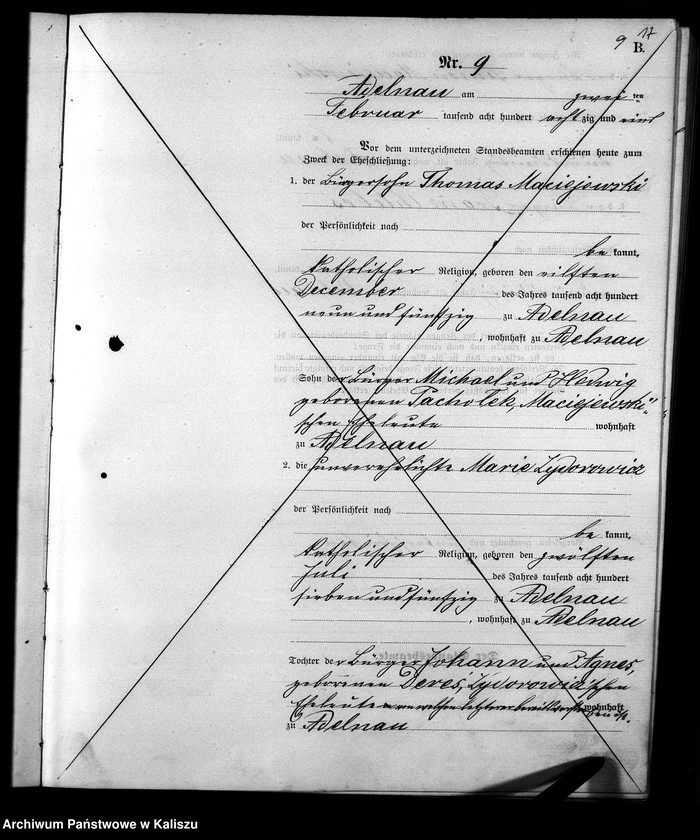 9 17
B.
Nr. 9
Adelnau am zwei ten
Februar tausend acht hundert acht zig und eins
Vor dem unterzeichneten Standesbeamten erschienen heute zum
Zweck der Eheschließung:
1. der Bürgersohn Thomas Maciejewski
der Persönlichkeit nach
be kannt,
katholischer Religion, geboren den eilften
December des Jahres tausend acht hundert
neun und fünfzig zu Adelnau
, wohnhaft zu Adelnau
Sohn der Bürger Michael und Hedwig
geborenen Pacholek, Maciejewski"
schen Eheleute wohnhaft
zu Adelnau
2. die unverehelichte Marie Zydorowicz
der Persönlichkeit nach
be kannt,
katholischer Religion, geboren den zwölften
Juli des Jahres tausend acht hundert
sieben und fünfzig zu Adelnau
, wohnhaft zu Adelnau
Tochter der Bürger Johann und Agnes,
geborenen Deres, Zydorowicz'schen
Eheleute von welchen letztere wohnhaft
zu Adelnau
Archiwum Państwowe w Kaliszu